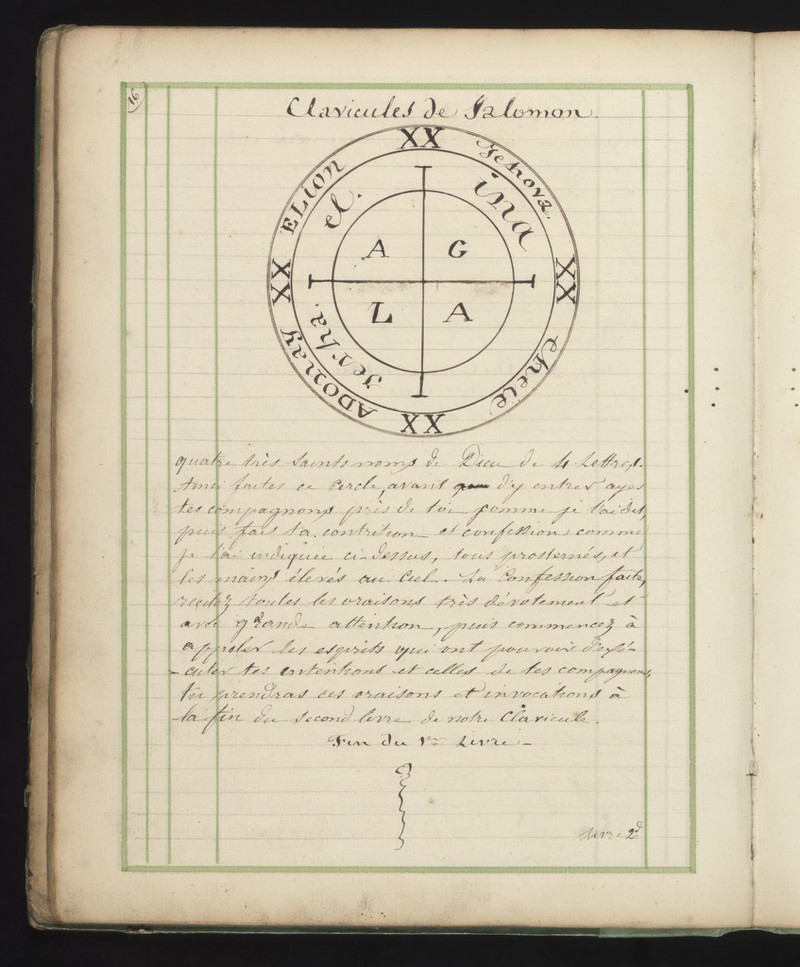 16
Clavicules de Salomon.
XX
Jehova.
ELION
el.
ina
A G
XX
XX
L A
Jerha.
ADONAY
eheie
XX
quatre très Saints noms de Dieu de 4 Lettres.
Ainsi faites ce Cercle, avant d'y entrer ayez
tes compagnons près de toi comme je l'ai dit,
puis fais ta contrition et confession comme
je l'ai indiquée ci-dessus, tous prosternés, et
les mains élevés au Ciel. La Confession faite,
recitez toutes les oraisons très dévotement et
avec grande attention, puis commencez à
appeler les esprits qui ont pouvoir d'exé-
cuter tes intentions et celles de tes compagnons,
tu prendras ces oraisons et invocations à
la fin du second livre de notre Clavicule.
Fin du 1er Livre
Livre 2d